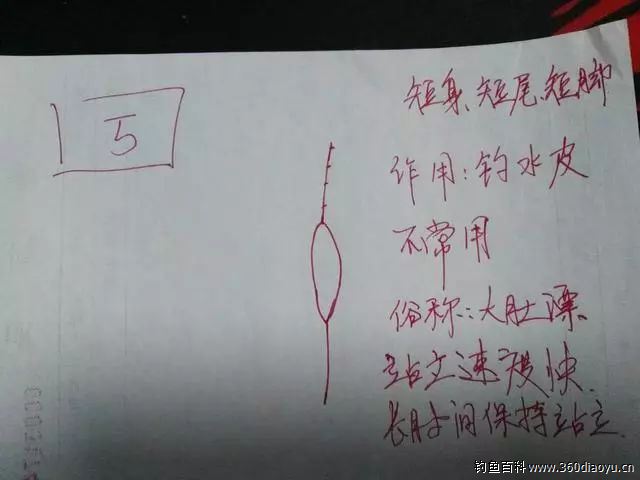 5
短身、短尾、短脚
作用:钓水皮
不常用
俗称:大肚漂
站立速度快、
长时间保持站立
钓鱼百科www.360diaoyu.cn